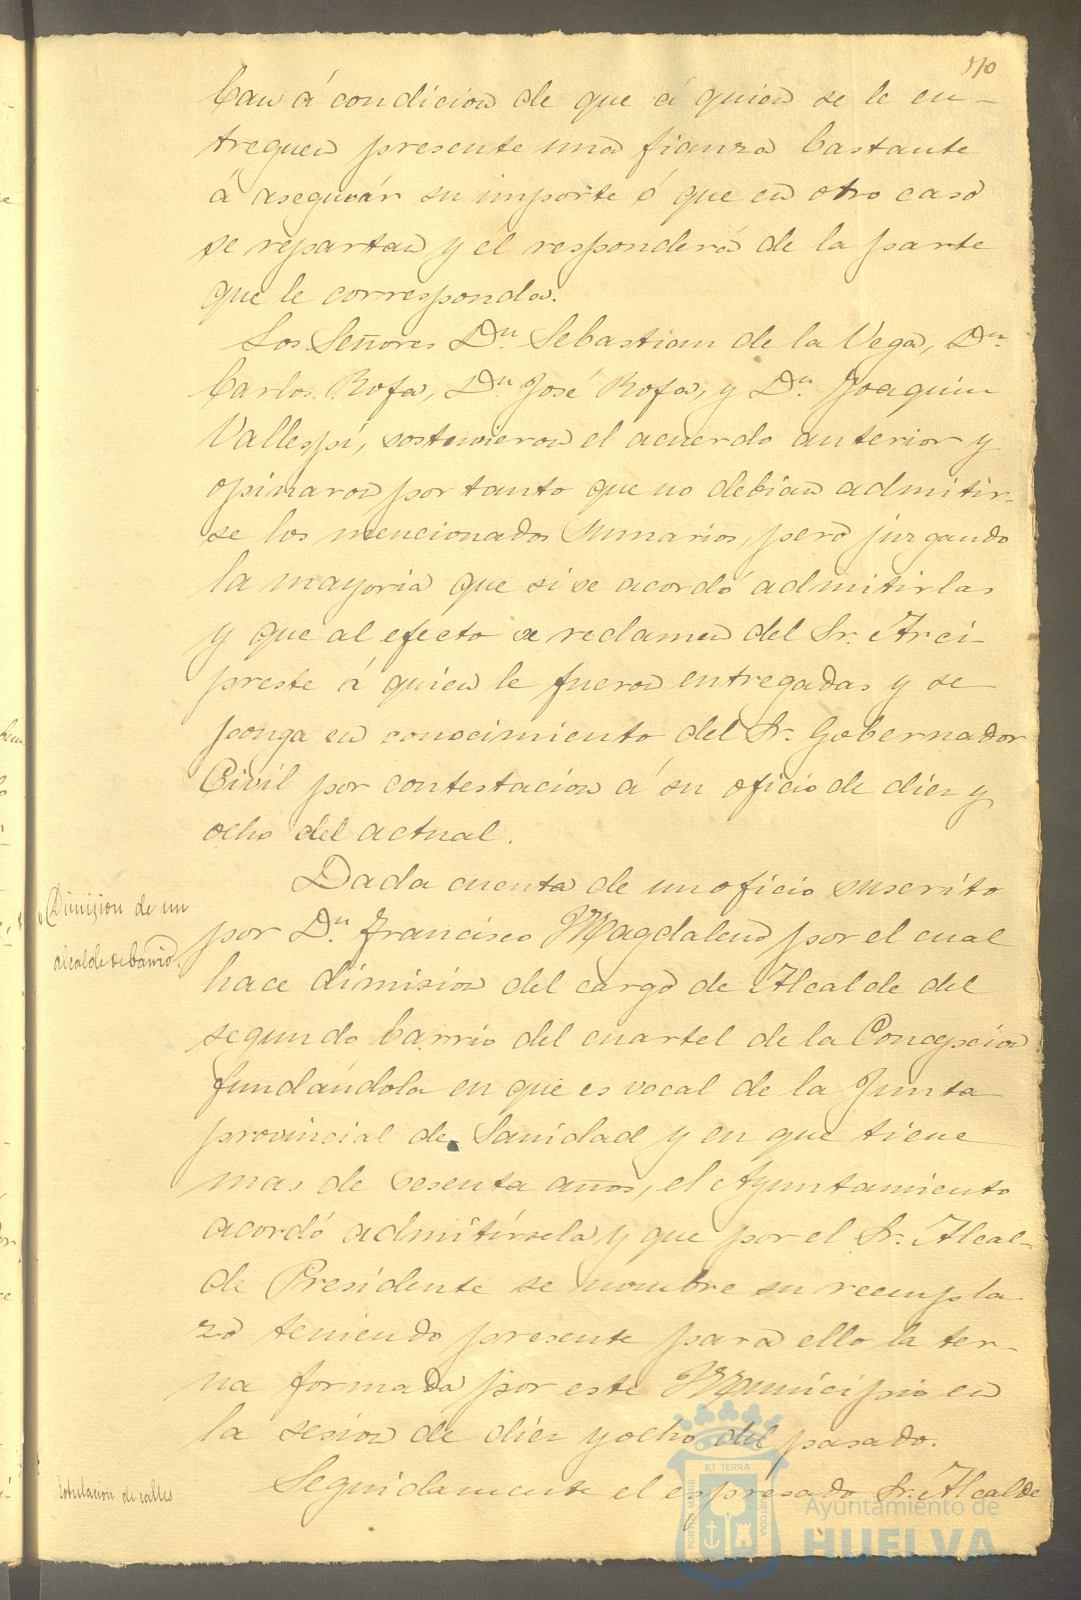 ban á condicion de que á quien se le en-
treguen presente una fianza bastante
á asegurár su importe ó que en otro caso
se repartan y él responderá de la parte
que le corresponda.
Los Señores Dn. Sebastian de la Vega, Dn.
Carlos Rofa, Dn. José Rofa, y Dn. Joaquin
Vallespí, sostuvieron el acuerdo anterior y
opinaron por tanto que no debian admitir-
se los mencionados sumarios, pero juzgando
la mayoria que si se acordó admitirlas
y que al efecto se reclamen del Sr. Arci
preste á quien le fueron entregadas y se
ponga en conocimiento del Sr. Gobernador
Civil por contestacion á su oficio de diez y
ocho del actual.
Dimision de un
alcalde de barrio.
Dada cuenta de un oficio suscrito
por Dn. Francisco Magdaleno por el cual
hace dimision del cargo de Alcalde del
segundo barrio del cuartel de la Concepcion
fundándola en que es vocal de la Junta
provincial de Sanidad y en que tiene
mas de sesenta años, el Ayuntamiento
acordó admitírsela y que por el Sr. Alcal-
de Presidente se nombre su reempla
zo teniendo presente para ello la ter-
na formada por este Municipio en
la sesion de diez y ocho del pasado.
rotulacion de calles
Seguidamente el espresado Sr. Alcalde
PORTUS MARIS
ET TERRA
CUSTODIA
Ayuntamiento de
HUELVA